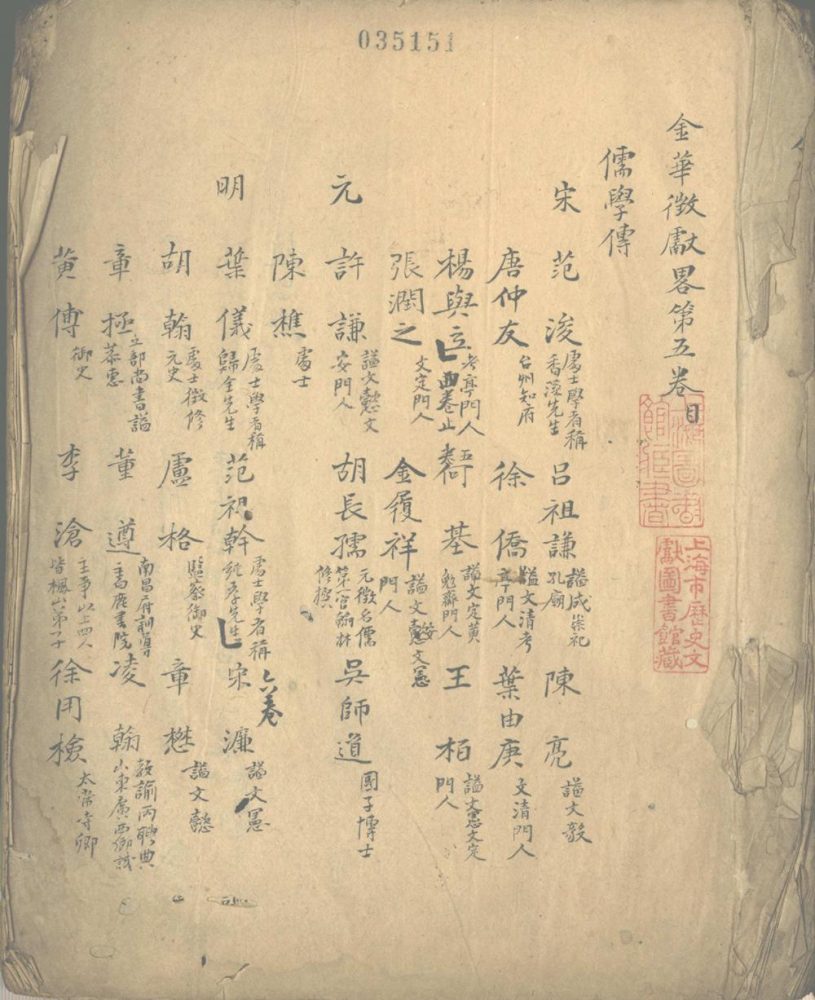 035151
金華徵獻畧第五卷目
儒學傳
宋 范浚 處士學者稱香溪先生 呂祖謙 謚成崇祀孔廟 陳亮 謚文毅
唐仲友 台州知府 徐僑 謚文清考亭門人 葉由庚 文清門人
楊與立 考亭門人 四卷止 五卷 何基 謚文定黃勉齋門人 王柏 謚文憲文定門人
張潤之 文定門人 金履祥 謚文安文憲門人
元 許謙 謚文懿文安門人 胡長孺 元徵名儒第一官翰林修撰 吳師道 國子博士
陳樵 處士
明 葉儀 處士學者稱歸全先生 范祖幹 處士學者稱純孝先生 六卷 宋濂 謚文憲
胡翰 處士徵修元史 盧格 監察御史 章懋 謚文懿
章拯 工部尚書謚恭惠 董遵 南昌府訓導主書院 凌翰 教諭丙聘典山東廣西鄉試
黃傅 御史 李滄 主事以上四人皆楓山弟子 徐用檢 太常寺卿
上海市歷史文獻圖書館藏